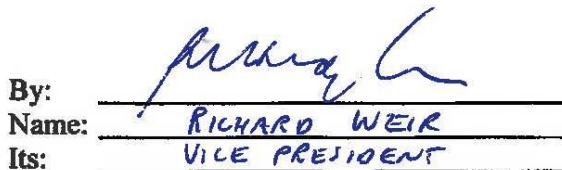 By:
Name: RICHARD WEIR
Its: VICE PRESIDENT